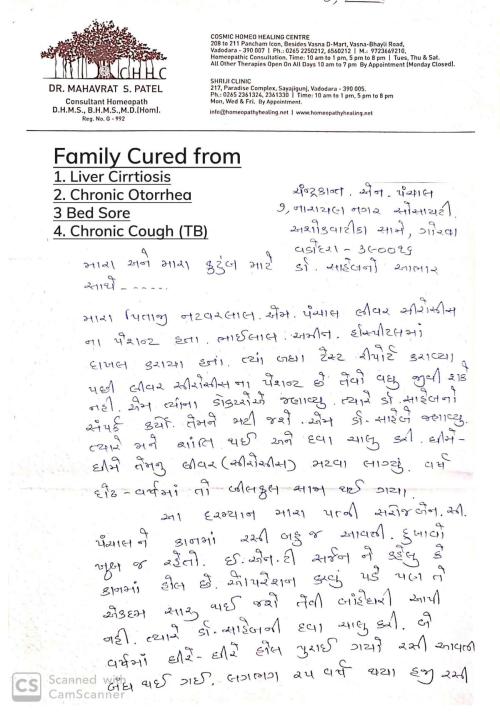 CHHC
DR. MAHAVRAT S. PATEL
Consultant Homeopath
D.H.M.S., B.H.M.S.,M.D.(Hom).
Reg. No. G - 992
COSMIC HOMEO HEALING CENTRE
208 to 211 Pancham Icon, Besides Vasna D-Mart, Vasna-Bhayli Road,
Vadodara - 390 007 | Ph.: 0265 2250212, 6560212 | M.: 9723669210,
Homeopathic Consultation. Time: 10 am to 1 pm, 5 pm to 8 pm | Tues, Thu & Sat.
All Other Therapies Open On All Days 10 am to 7 pm By Appointment (Monday Closed).
SHRIJI CLINIC
217, Paradise Complex, Sayajigunj, Vadodara - 390 005.
Ph.: 0265 2361324, 2361330 | Time: 10 am to 1 pm, 5 pm to 8 pm
Mon, Wed & Fri. By Appointment.
info@homeopathyhealing.net | www.homeopathyhealing.net
Family Cured from
1. Liver Cirrtiosis
2. Chronic Otorrhea
3 Bed Sore
4. Chronic Cough (TB)
ચંન્દ્રકાન્ત . એન . પંચાલ
૭, નારાયણ નગર સોસાયટી.
અશોકવાટીકા સામે, ગોરવા
વડોદરા - ૩૯૦૦૧૬
મારા અને મારા કુટુંબ માટે ડૉ. સાહેબનો આભાર
સાથે - - - - - .
મારા પિતાજી નટવરલાલ . એમ. પંચાલ લીવર સીરોસીસ
ના પેશન્ટ હતા. ભાઈલાલ . અમીન . હોસ્પીટલમાં
દાખલ કરાયા હતાં. ત્યાં બધા ટેસ્ટ રીપોર્ટ કરાવ્યા
પછી લીવર સીરોસીસ ના પેશન્ટ છે તેવો વધુ જીવી શકે
નહી. એમ ત્યાંના ડોકટરોએ જણાવ્યુ. ત્યારે ડૉ. સાહેબનો
સંપર્ક કર્યો. તેમને મટી જશે. એમ ડૉ. સાહેબે જણાવ્યુ.
ત્યારે મને શાંતિ થઈ અને દવા ચાલુ કરી. ધીમે-
ધીમે તેમનુ લીવર (સીરોસીસ) મટવા લાગ્યું. વર્ષ
દોઢ - વર્ષમાં તો બીલકુલ સાજા થઈ ગયા.
આ દરમ્યાન મારા પત્ની સરોજબેન. સી.
પંચાલ ને કાનમાં રસી બહુ જ આવતી. દુખાવો
ખુબ જ રહેતો. ઈ. એન. ટી સર્જન ને કહેલુ કે
કાનમાં હોલ છે. ઓપરેશન કરવું પડે પણ તે
એકદમ સારુ થઈ જશે તેની બાંહેધારી આપી
નહી. ત્યારે ડૉ. સાહેબની દવા ચાલુ કરી. બે
વર્ષમાં ધીરે - ધીરે હોલ પુરાઈ ગયો રસી આવતી
બંધ થઈ ગઈ. લગભગ ૨૫ વર્ષ થયા હજી રસી
CS Scanned with
CamScanner